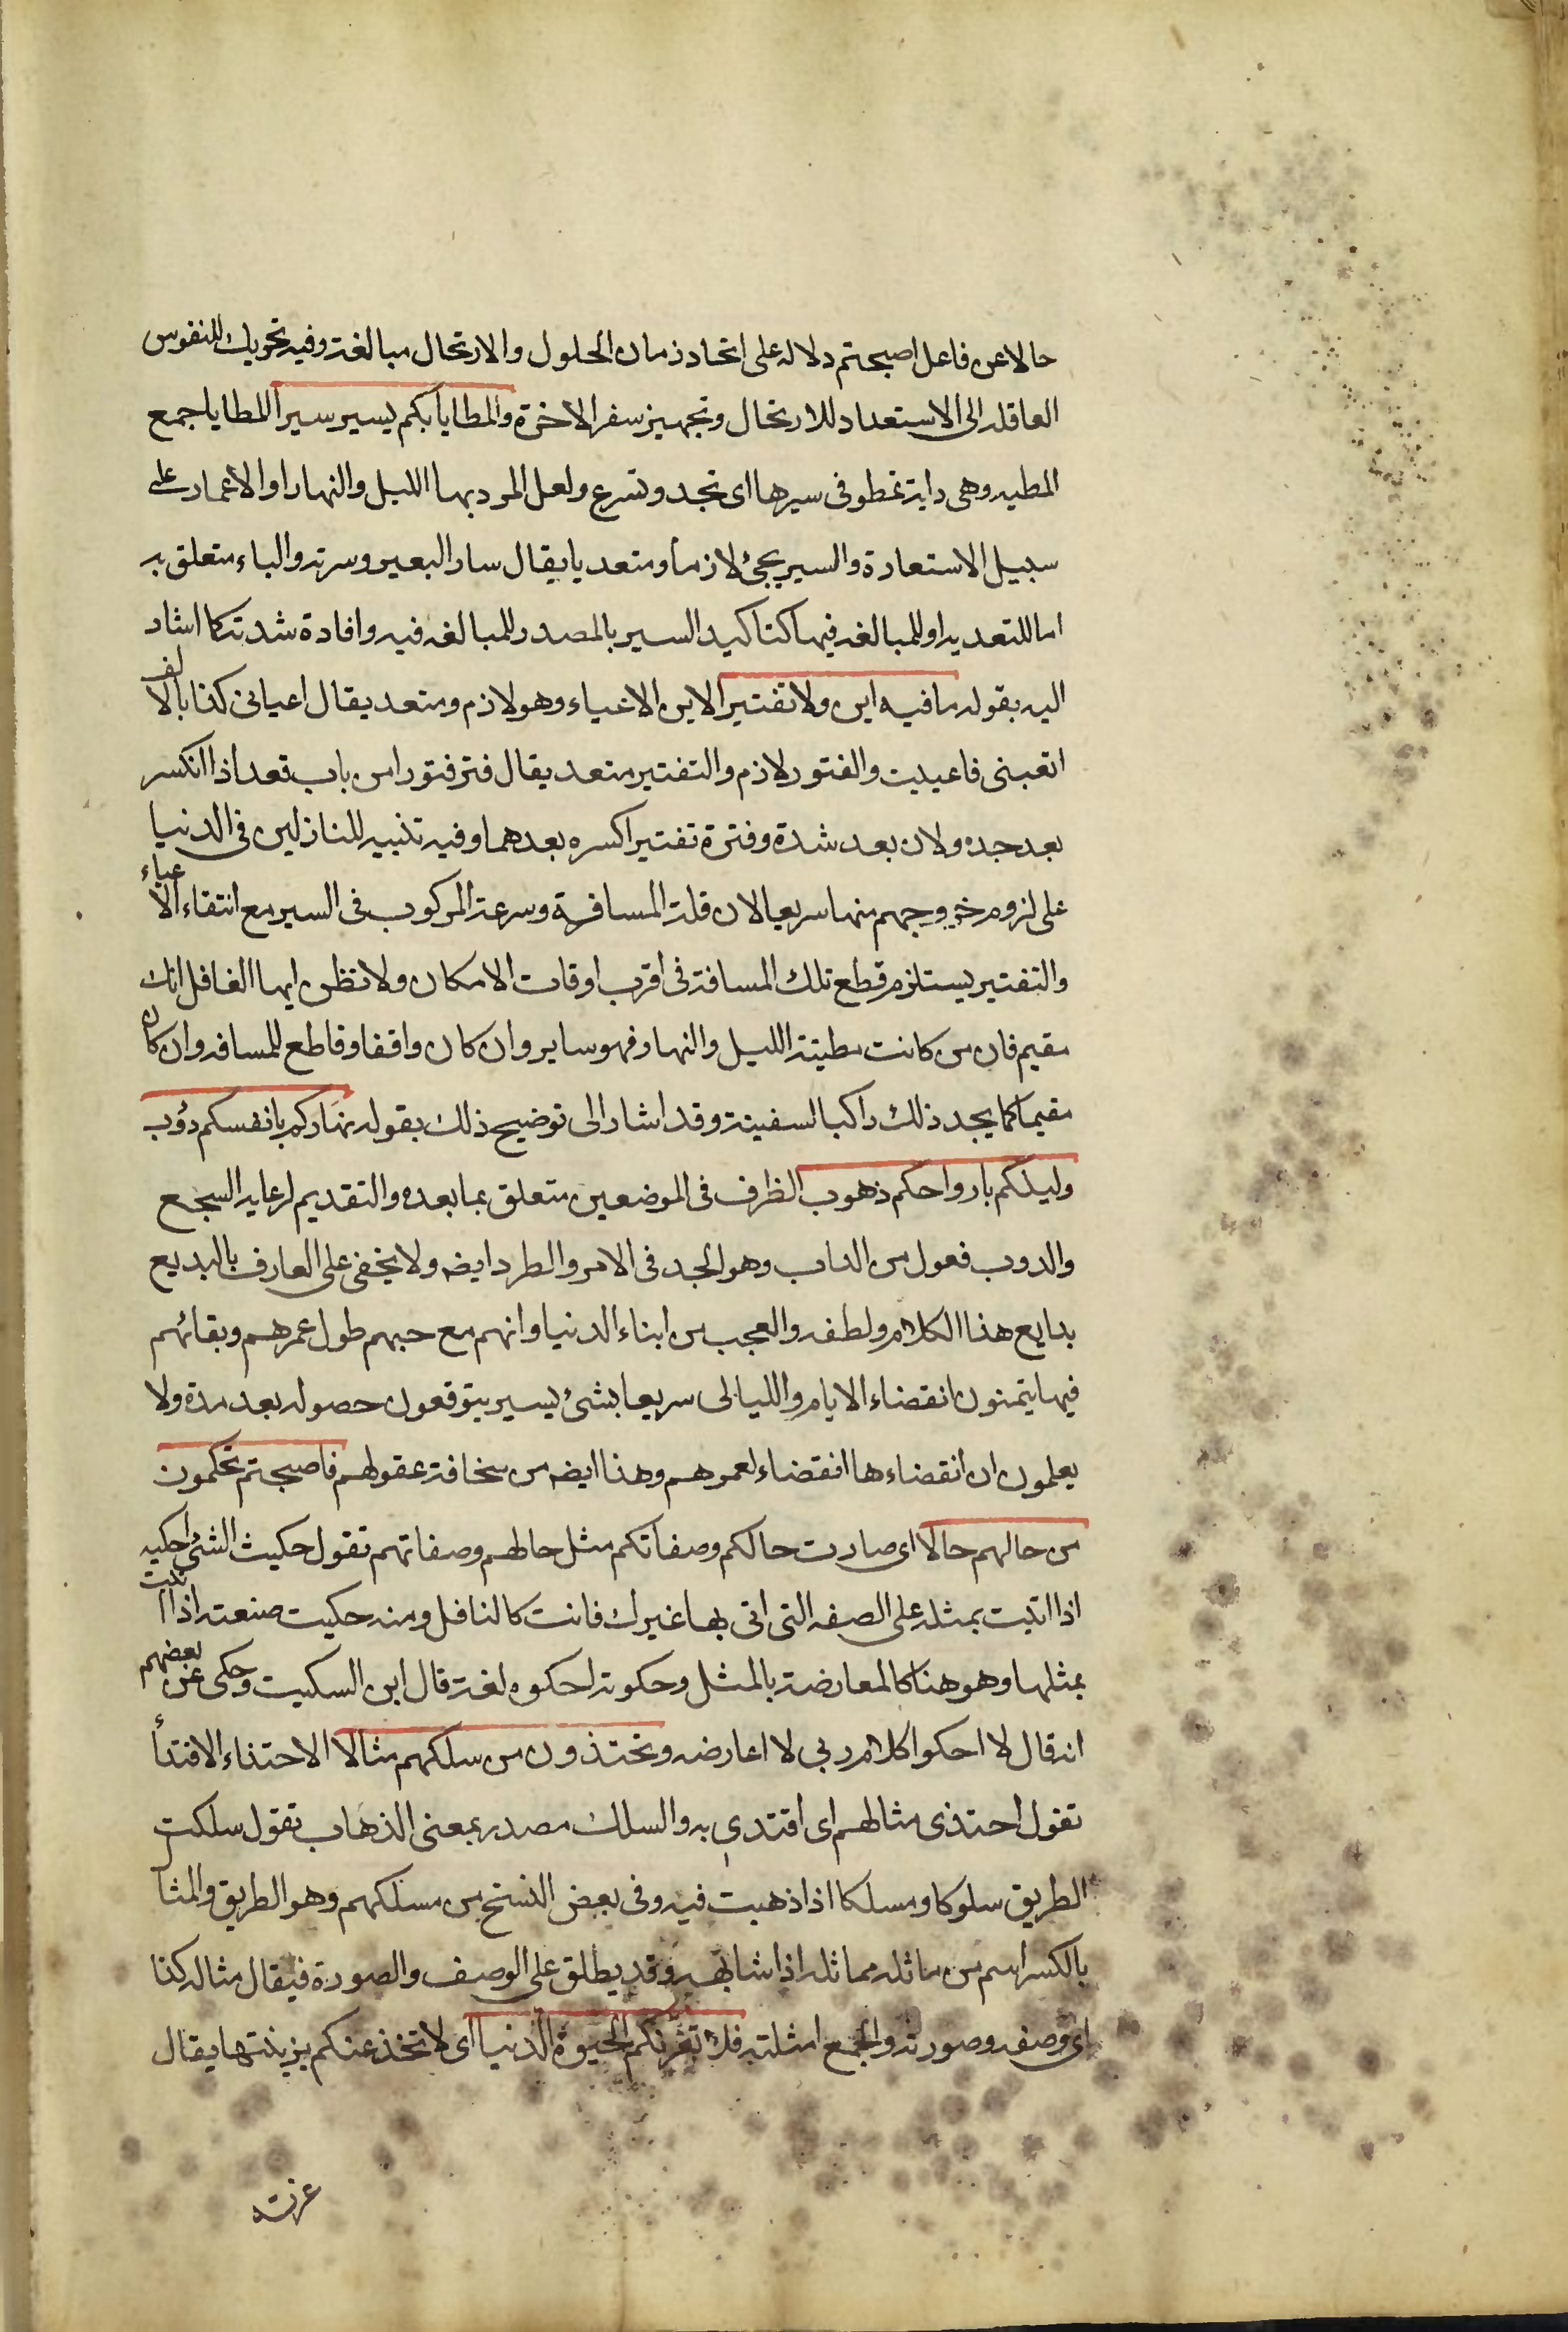 حالا عن فاعل اصبحتم دلالة على اتحاد زمان الحلول والارتحال مبالغة وفيه تحريك للنفوس
العاقلة الى الاستعداد للارتحال وتجهيز سفر الاخرة والمطايا بكم يسير سيرا المطايا جمع
المطيه وهى دابة تمطو فى سيرها اى تجد وتسرع ولعل المرد بها الليل والنهار او الاعمار على
سبيل الاستعارة والسير يجئ لازما ومتعديا يقال سار البعير وسرته والباء متعلق به
اما للتعديه او للمبالغه فيها كتاكيد السير بالمصدر للمبالغه فيه وافادة شدته كما اشار
اليه بقوله ما فيه اين ولا تفتير الاين الاعياء وهو لازم ومتعد يقال اعيانى كذا بالالف
اتعبنى فاعييت والفتور لازم والتفتير متعد يقال فتر فتورا من باب قعد اذا انكسر
بعد جده ولان بعد شدة وفتره تفتيرا كسره بعدهما وفيه تنبيه للنازلين فى الدنيا
على لزوم خروجهم منها سريعا لان قلة المسافة وسرعة المركوب فى السير مع انتفاء الاعياء
والتفتير يستلزم قطع تلك المسافة فى اقرب اوقات الامكان ولا تظن ايها الغافل انك
مقيم فان من كانت مطيته الليل والنهار فهو ساير وان كان واقفا وقاطع للمسافه وان كان
مقيما كما يجد ذلك راكب السفينة وقد اشار الى توضيح ذلك بقوله نهاركم بانفسكم دؤب
وليلكم بارواحكم ذهوب الظرف فى الموضعين متعلق بما بعده والتقديم لرعاية السجع
والدوب فعول من الداب وهو الجد فى الامر والطرد ايضه ولا يخفى على العارف بالبديع
بدايع هذا الكلام ولطفه والعجب من ابناء الدنيا وانهم مع حبهم طول عمرهم وبقائهم
فيها يتمنون انقضاء الايام والليالى سريعا بشئ يسير يتوقعون حصوله بعد مدة ولا
يعلمون ان انقضاءها انقضاء لعمرهم وهذا ايضه من سخافة عقولهم فاصبحتم تحكمون
من حالهم حالا اى صارت حالكم وصفاتكم مثل حالهم وصفاتهم تقول حكيت الشئ احكيه
اذا اتيت بمثله على الصفه التى اتى بها غيرك فانت كالناقل ومنه حكيت صنعته اذا اتيت
بمثلها وهو هنا كالمعارضة بالمثل وحكوته احكوه لغة قال ابن السكيت وحكى عن بعضهم
انه قال لا احكوا كلام ربى لا اعارضه وتحتذون من سلكهم مثالا الاحتذاء الاقتدأ
تقول احتذى مثالهم اى اقتدى به والسلك مصدر بمعنى الذهاب تقول سلكت
الطريق سلوكا ومسلكا اذا ذهبت فيه وفى بعض النسخ من مسلكهم وهو الطريق والمثال
بالكسر اسم من ماثله مماثلة اذا شابهه وقد يطلق على الوصف والصورة فيقال مثاله كذا
اى وصفه وصورته والجمع امثلته فلا تغرنكم الحيوة الدنيا اى لا تخدعنكم بزينتها يقال
غرته